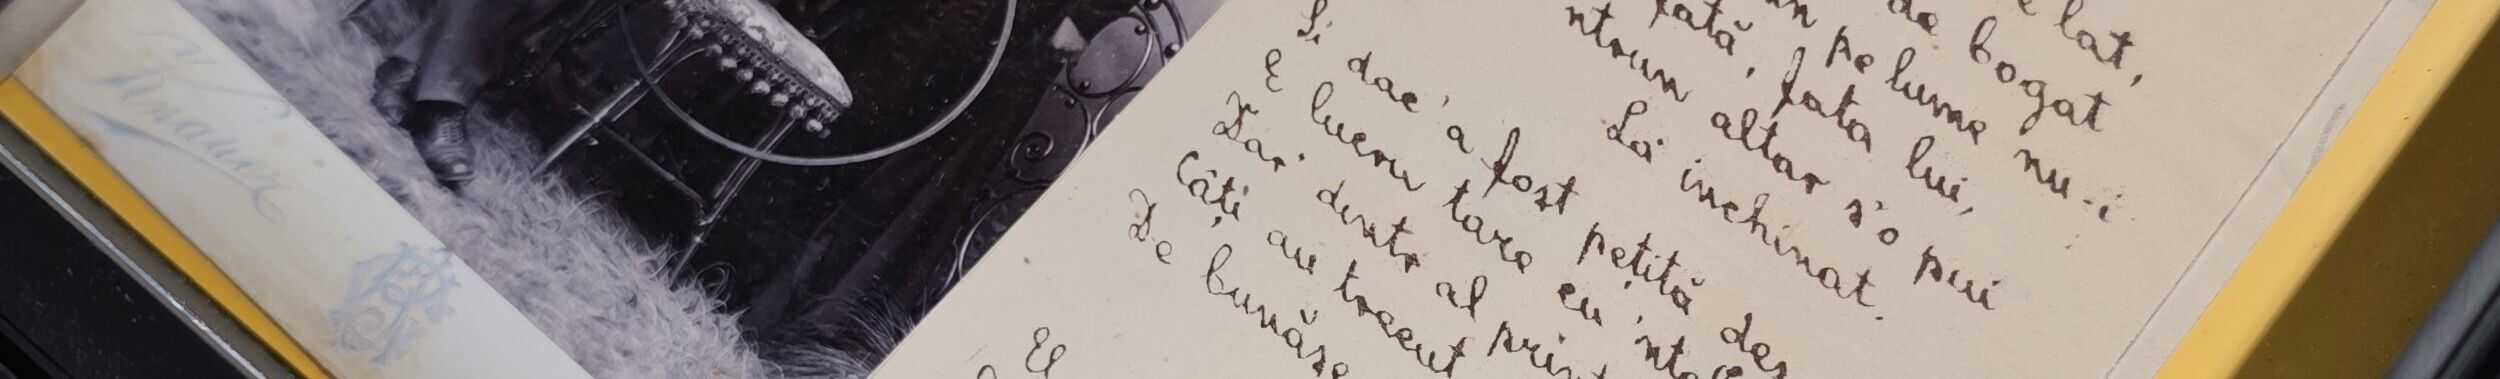 e lat,
de bogat
pe lume nu-i
fată, fata lui,
ntrun altar s'o pui
La inchinat.
Și dac'a fost pețită des
E lucru tare cu 'nțe
Dar dintr al prin
Câți au trecut
De bunăse
El